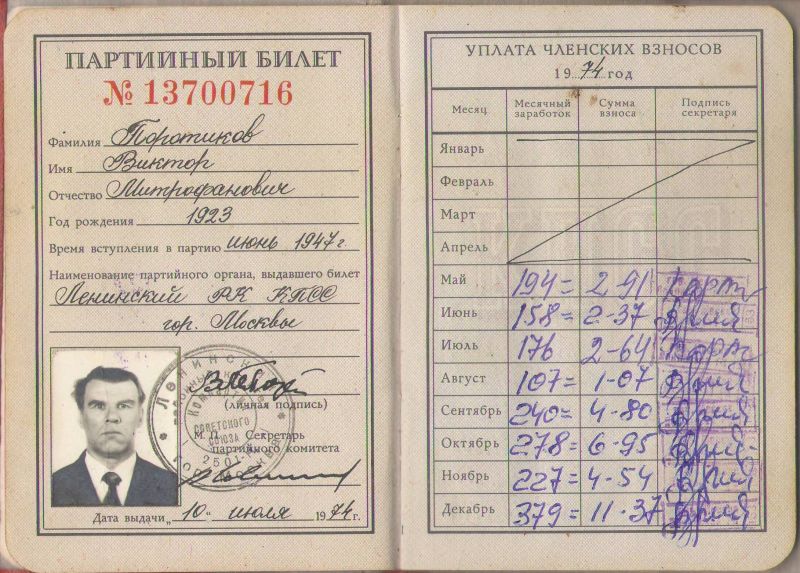 ПАРТИЙНЫЙ БИЛЕТ
№ 13700716
Фамилия Поротиков
Имя Виктор
Отчество Митрофанович
Год рождения 1923
Время вступления в партию июнь 1947 г.
Наименование партийного органа, выдавшего билет
Ленинский РК КПСС
гор. Москвы
(личная подпись)
М. П. Секретарь
партийного комитета
СОВЕТСКОГО
СОЮЗА
2501
Дата выдачи „10" июля 1974 г.
УПЛАТА ЧЛЕНСКИХ ВЗНОСОВ
1974 год
Месяц Месячный заработок Сумма взноса Подпись секретаря
Январь
Февраль
Март
Апрель
Май 194= 2-91
Июнь 158= 2-37
Июль 176 2-64
Август 107= 1-07
Сентябрь 240= 4-80
Октябрь 278= 6-95
Ноябрь 227= 4-54
Декабрь 379= 11-37